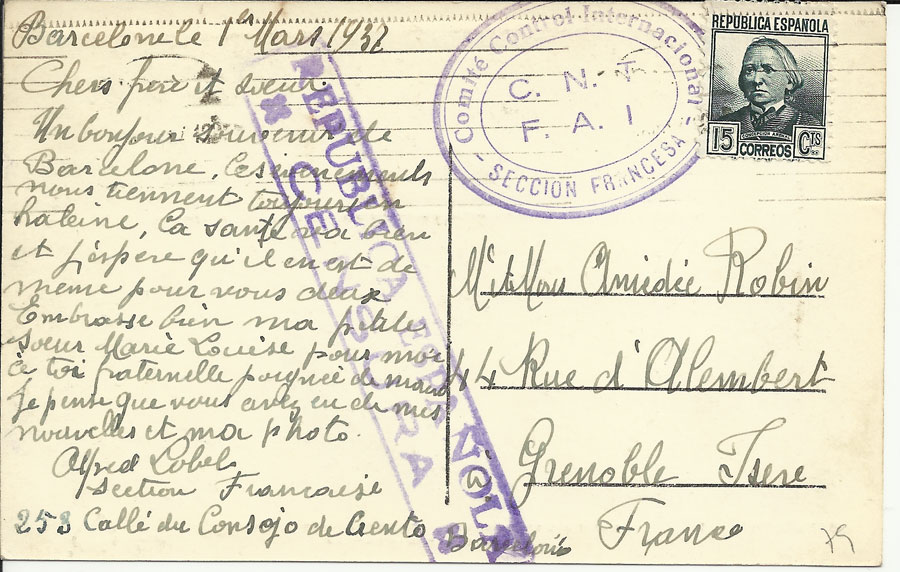 Barcelone le 1er Mars 1937
Chers frère et soeur
Un bonjour souvenir de
Barcelone, les évènements
nous tiennent toujours en
haleine, la santé va bien
et j'espère qu'il en est de
meme pour vous deux
Embrasse bien ma petite
soeur Marie Louise pour moi
à toi fraternelle poignée de main
Je pense que vous avez eu de mes
nouvelles et ma photo.
Alfred
Section Française
253 Callé du Consejo de Ciento Barcelone
REPUBLICA ESPAÑOLA
CENSURA
Comité Control Internacional
C. N. T.
F. A. I
- SECCION FRANCESA -
REPÚBLICA ESPAÑOLA
15 CTS
CONCEPCIÓN ARENAL
CORREOS
Mr et Mme Amédée Robin
44 Rue d'Alembert
Grenoble Isere
France